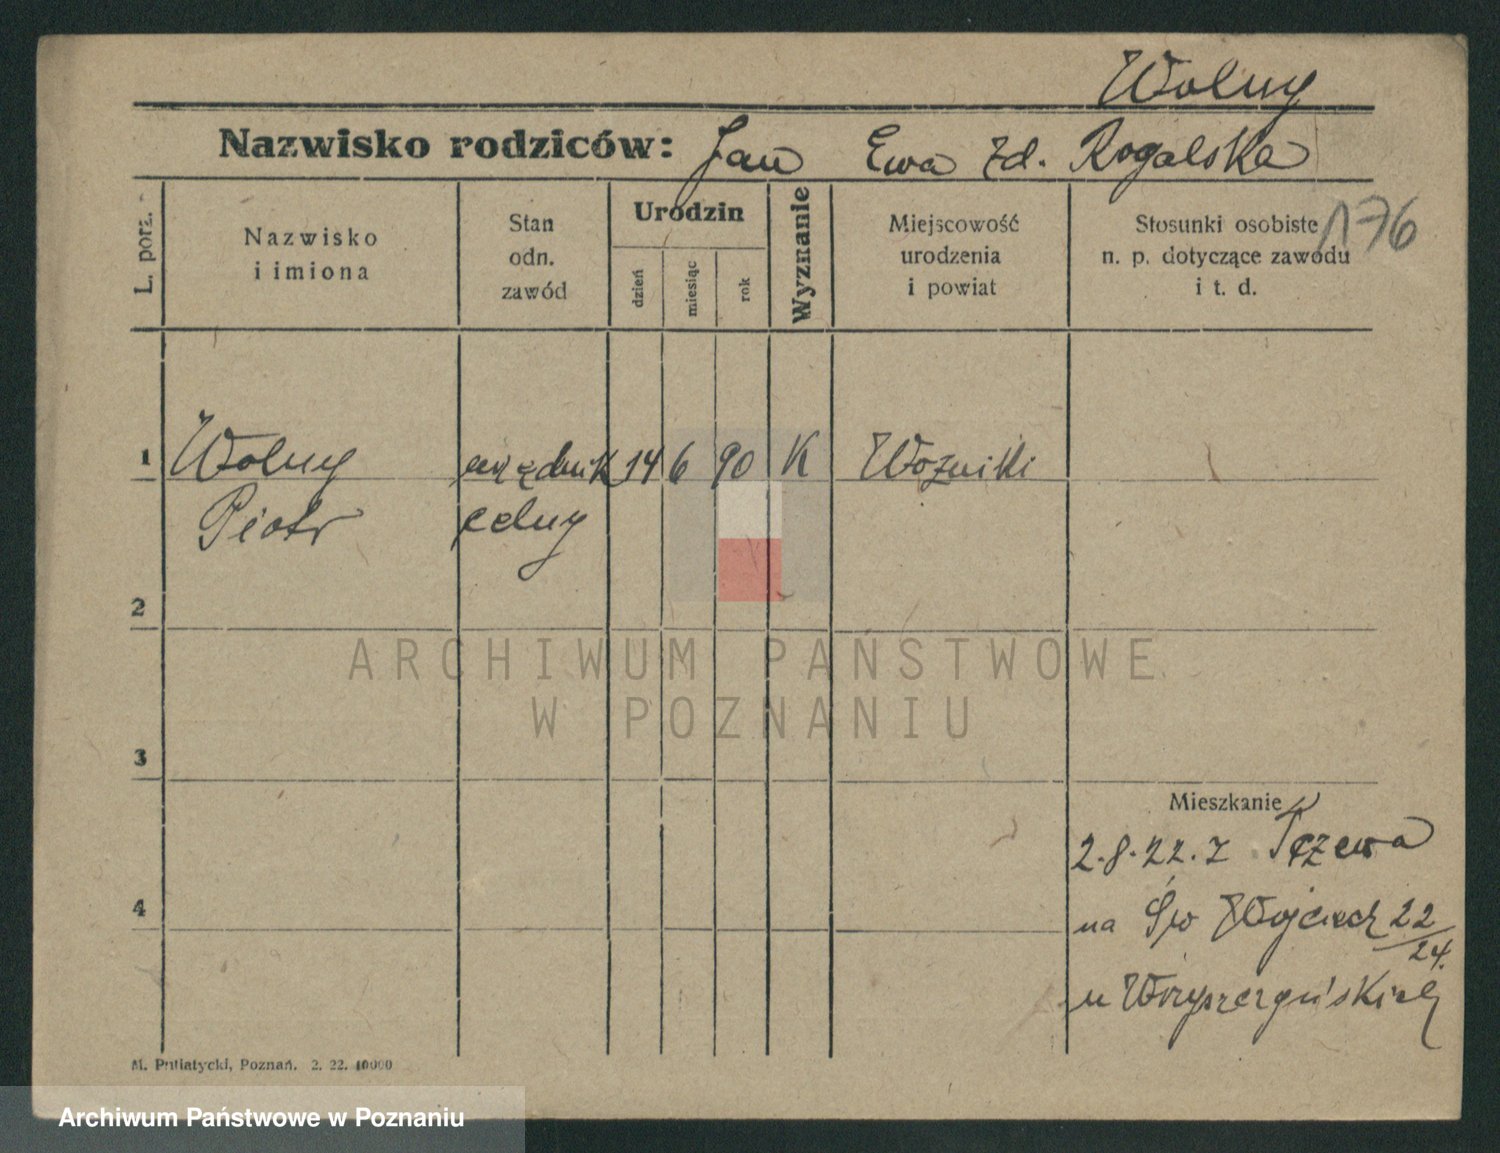 Wolny
Nazwisko rodziców: Jan Ewa zd. Rogalska
176
L. porz.
Nazwisko
i imiona
Stan
odn.
zawód
Urodzin
dzień
miesiąc
rok
Wyznanie
Miejscowość
urodzenia
i powiat
Stosunki osobiste
n. p. dotyczące zawodu
i t. d.
1 Wolny urzędnik 14 6 90 K Wozniki
Piotr celny
2
ARCHIWUM PAŃSTWOWE
W POZNANIU
3
Mieszkanie
2.8.22. z Tczewa
4
na Św Wojciech 22/24.
u
M. Putiatycki, Poznań. 2. 22. 10000
Archiwum Państwowe w Poznaniu